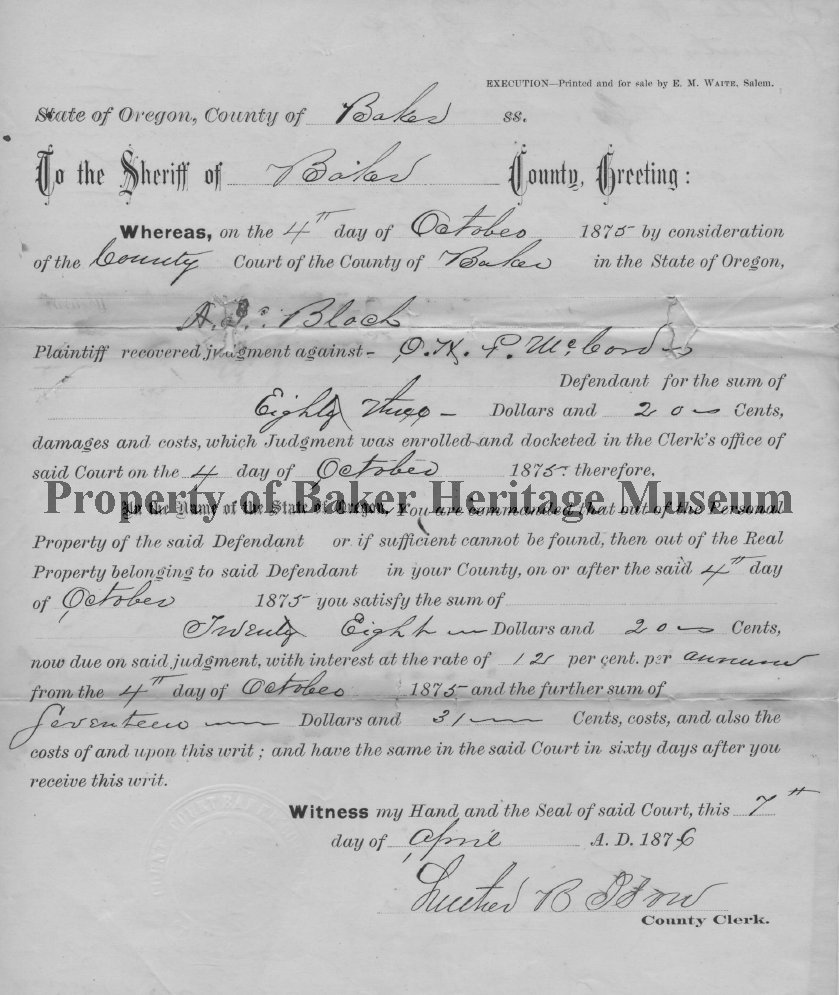 EXECUTION—Printed and for sale by E. M. WAITE, Salem.
State of Oregon, County of Baker ss.
To the Sheriff of Baker County, Greeting:
Whereas, on the 4th day of October 1875 by consideration
of the County Court of the County of Baker in the State of Oregon,
Bloch
Plaintiff recovered judgment against - O. H. P. McCord
Defendant for the sum of
Eighty three - Dollars and 20 Cents,
damages and costs, which Judgment was enrolled and docketed in the Clerk's office of
said Court on the 4 day of October 1875 therefore.
Property of Baker Heritage Museum
In the Name of the State of Oregon, You are commanded that out of the Personal
Property of the said Defendant or if sufficient cannot be found, then out of the Real
Property belonging to said Defendant in your County, on or after the said 4th day
of October 1875 you satisfy the sum of
Twenty Eight Dollars and 20 Cents,
now due on said judgment, with interest at the rate of 12 per cent. per annum
from the 4th day of October 1875 and the further sum of
Seventeen Dollars and 31 Cents, costs, and also the
costs of and upon this writ; and have the same in the said Court in sixty days after you
receive this writ.
Witness my Hand and the Seal of said Court, this 7th
day of April A. D. 1876
Luther B Ison
County Clerk.